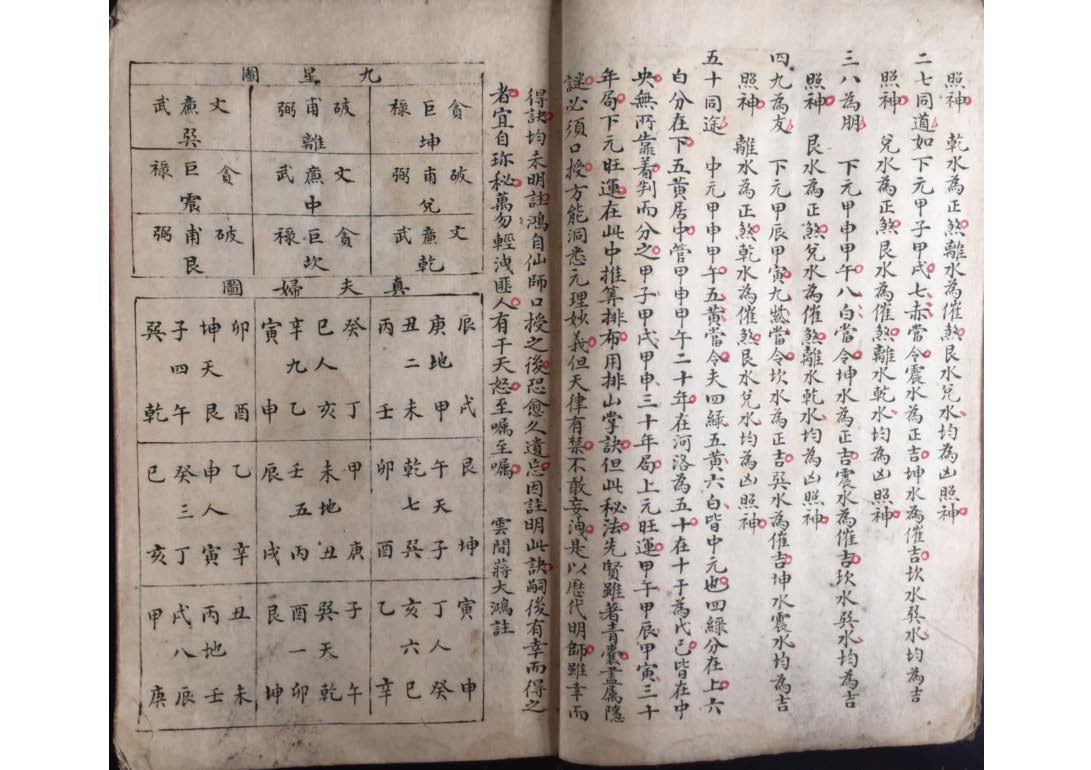 照神 乾水為正煞離水為催煞艮水兌水均為凶照神
二七同道如下元甲子甲戌七赤當令震水為正吉坤水為催吉坎水巽水均為吉
照神 兌水為正煞艮水為催煞離水乾水均為凶照神
三八為朋 下元甲申甲午八白當令坤水為正吉震水為催吉坎水巽水均為吉
照神 艮水為正煞兌水為催煞離水乾水均為凶照神
四九為友 下元甲辰甲寅九紫當令坎水為正吉巽水為催吉坤水震水均為吉
照神 離水為正煞乾水為催煞艮水兌水均為凶照神
五十同途 中元甲申甲午五黃當令夫四綠五黃六白皆中元也四綠分在上六
白分在下五黃居中管甲申甲午二十年在河洛為五十在十干為戊己皆在中
央無所靠着判而分之甲子甲戌甲申三十年局上元旺運甲午甲辰甲寅三十
年局下元旺運在此中推算排布用排山掌訣但此秘法先賢雖著青囊盡屬隱
謎必須口授方能洞悉元理妙義但天律有禁不敢妄洩是以歷代明師雖幸而
得訣均未明註鴻自仙師口授之後恐愈久遺忘因註明此訣嗣後有幸而得之
者宜自珍秘萬勿輕洩匪人有干天怒至囑至囑 雲間蔣大鴻註
九星圖
貪巨祿
坤
破甫弼
離
文廉武
巽
破甫弼
兌
文廉武
中
貪巨祿
震
文廉武
乾
貪巨祿
坎
破甫弼
艮
真夫婦圖
辰庚丑丙
地二
戌甲未壬
癸巳辛寅
人九
丁亥乙申
卯坤子巽
天四
酉艮午乾
艮午乾卯
天七
坤子巽酉
甲未壬辰
地五
庚丑丙戌
乙申癸巳
人三
辛寅丁亥
寅丁亥乙
人六
申癸巳辛
子巽酉艮
天一
午乾卯坤
丑丙戌甲
地八
未壬辰庚